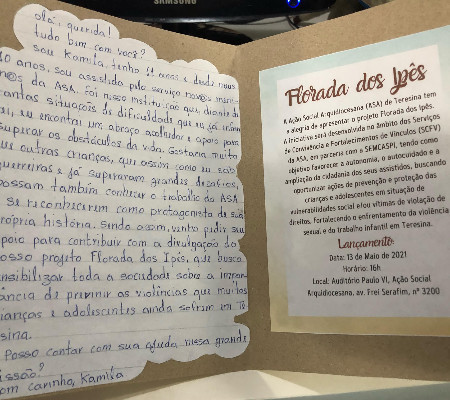 SAMSUNG
Olá, querida!
tudo bem com você?
sou Kamila, tenho 11 anos e desde meus
10 anos, sou assistida pelo serviço
da ASA. Foi nesse instituição que, diante de
tantas situações de dificuldade que eu já
eu encontrei um abraço acolhedor e apoio para
superar os obstáculos da vida. Gostaria muito
outras crianças, que assim como eu são
guerreiras e já superaram grandes desafios,
possam também conhecer o trabalho da ASA
e se reconhecerem como protagonista da sua
própria história. Sendo assim, venho pedir seu
apoio para contribuir com a divulgação do
nosso projeto Florada dos Ipês, que busca
sensibilizar toda a sociedade sobre a impor-
tância de prevenir as violências que muitos
crianças e adolescentes ainda sofrem em Te-
sina.
Posso contar com sua ajuda nessa grande
missão?
com carinho, Kamila
Florada dos Ipês
A Ação Social Arquidiocesana (ASA) de Teresina tem
a alegria de apresentar o projeto Florada dos Ipês.
A iniciativa será desenvolvida no âmbito dos Serviços
de Convivência e Fortalecimentos de Vínculos (SCFV)
da ASA, em parceria com a SEMCASPI, tendo como
objetivo favorecer a autonomia, o autocuidado e a
ampliação da cidadania dos seus assistidos, buscando
oportunizar ações de prevenção e proteção das
crianças e adolescentes em situação de
vulnerabilidades social e/ou vítimas de violação de
direitos. Fortalecendo o enfrentamento da violência
sexual e do trabalho infantil em Teresina.
Lançamento:
Data: 13 de Maio de 2021
Horário: 16h
Local: Auditório Paulo VI, Ação Social
Arquidiocesana, av. Frei Serafim, nº 3200